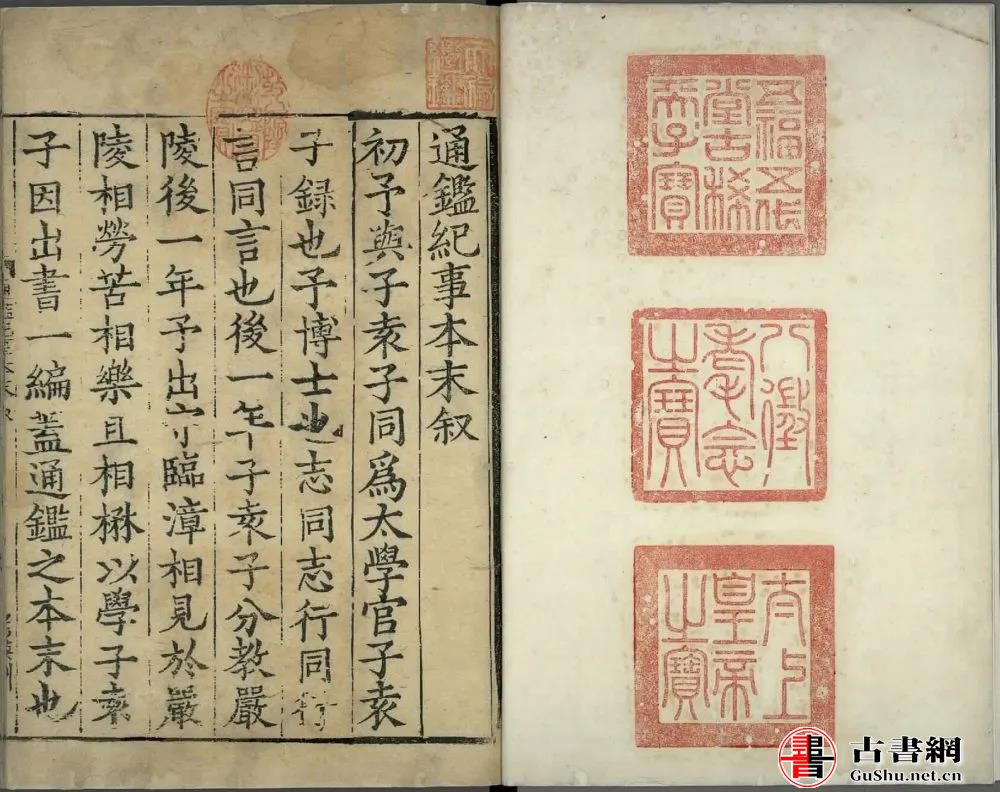 五福五代
堂古稀
天子寶
八徵
耄念
之寶
太上
皇帝
之寶
天祿
繼鑑
通鑑紀事本末叙
初予與子袁子同爲太學官子袁
子録也予博士也志同志行同行
言同言也後一年子袁子分教嚴
陵後一年予出守臨漳相見於嚴
陵相勞苦相樂且相楙以學子袁
子因出書一編蓋通鑑之本末也
書
古書網
GuShu.net.cn